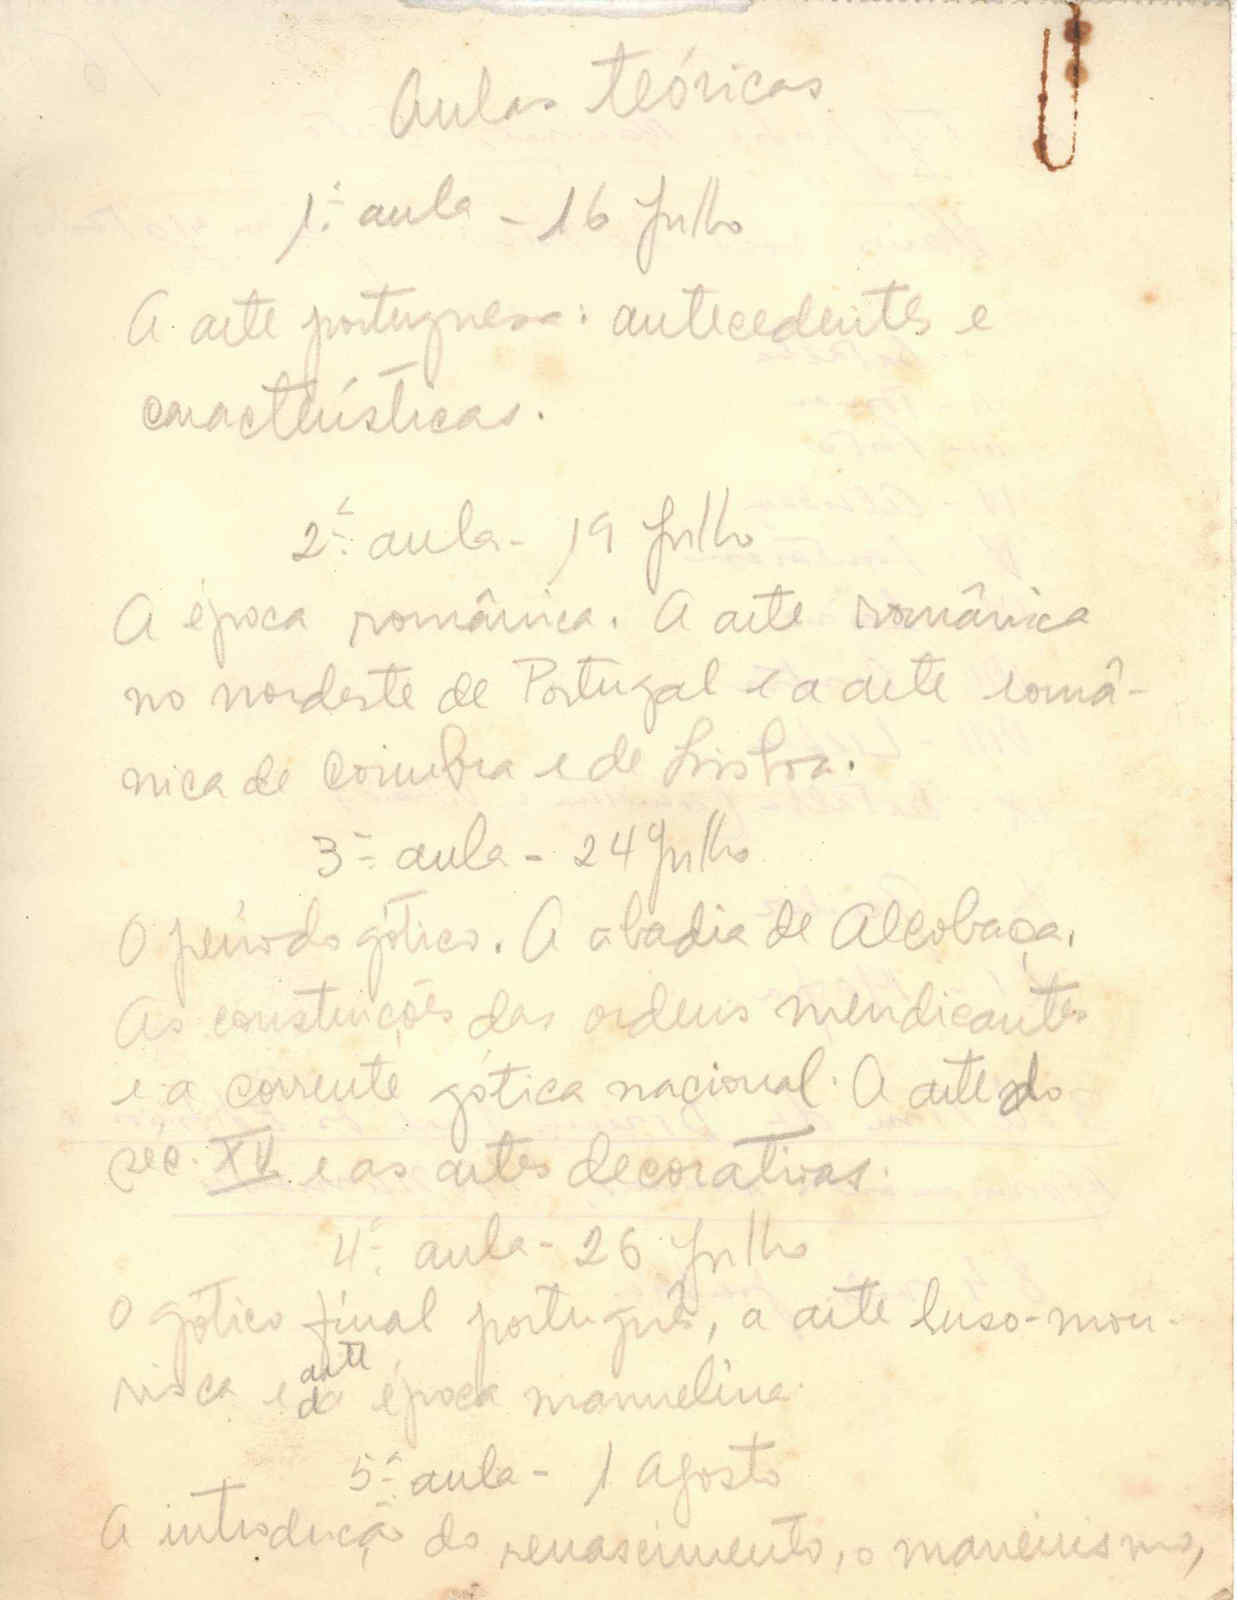 Aulas teóricas
1.ª aula - 16 Julho
A arte portuguesa: antecedentes e
características.
2.ª aula - 19 Julho
A época românica. A arte românica
no nordeste de Portugal e a arte romã-
nica de Coimbra e de Lisboa.
3ª aula - 24 Julho
O período gótico. A abadia de Alcobaça.
As construções das ordens mendicantes
e a corrente gótica nacional. A arte do
séc. XV e as artes decorativas.
4.ª aula - 26 Julho
O gótico final português, a arte luso-mou-
risca e arte da época manuelina.
5.ª aula - 1 Agosto
A introdução do renascimento, o maneirismo,